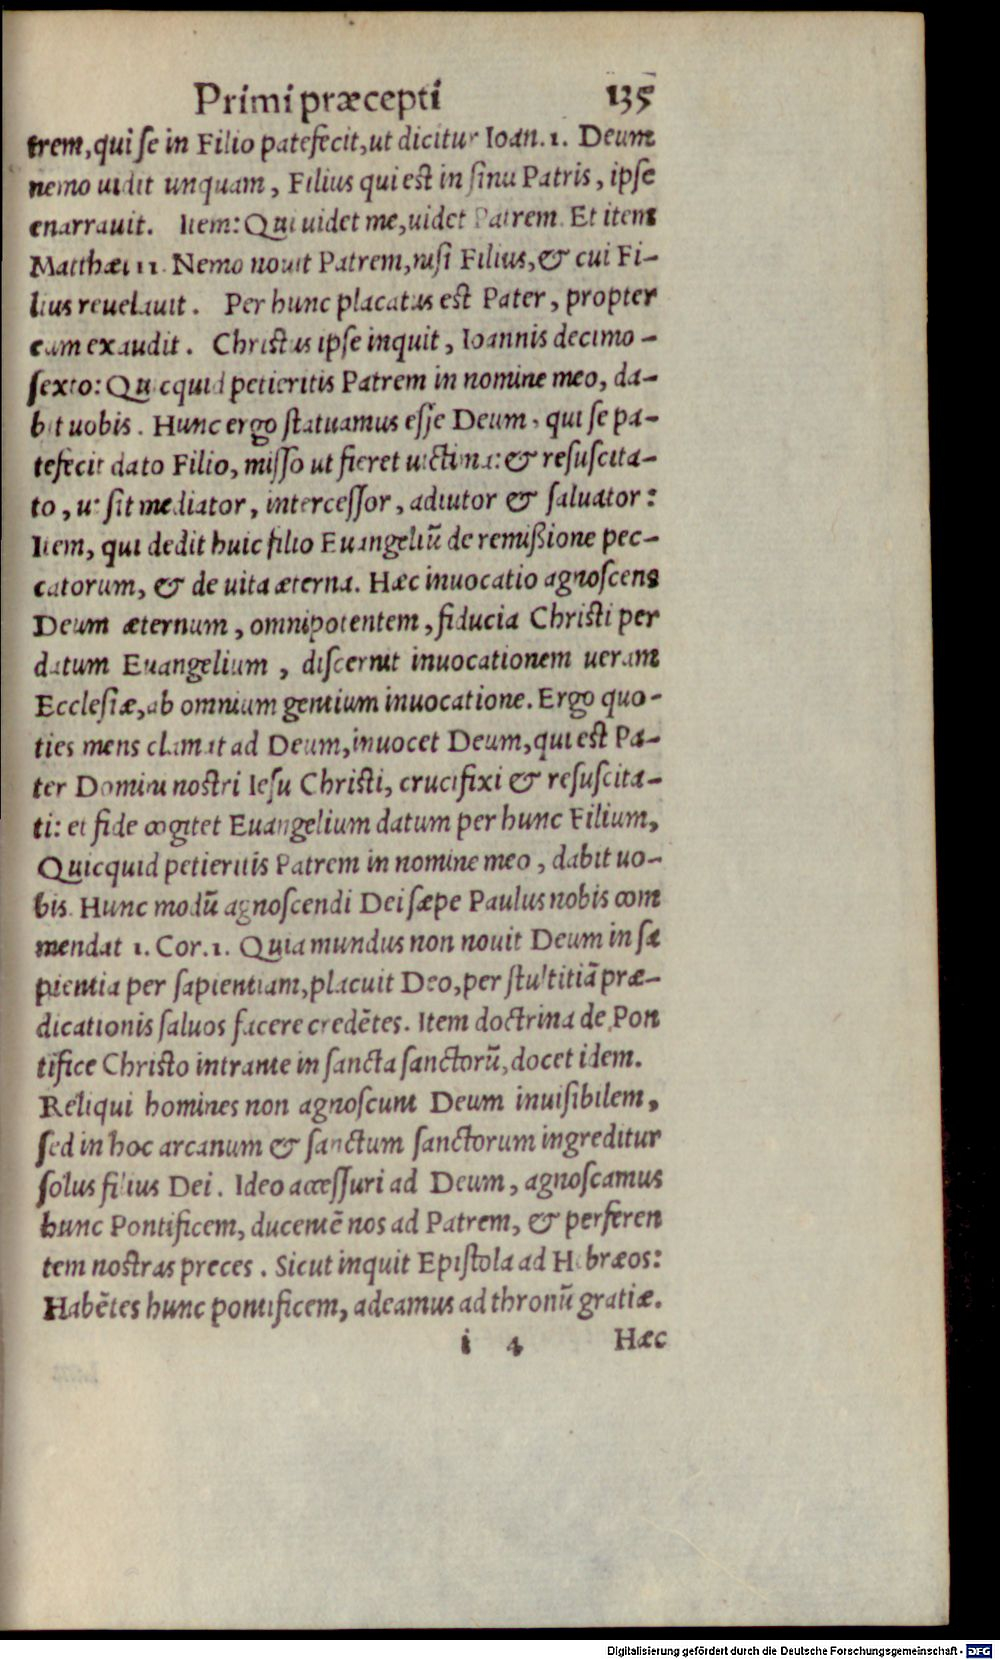 Primi præcepti 135
trem, qui se in Filio patefecit, ut dicitur Ioan. 1. Deum
nemo uidit unquam, Filius qui est in sinu Patris, ipse
enarrauit. Item: Qui uidet me, uidet Patrem. Et item
Matthæi 11. Nemo nouit Patrem, nisi Filius, & cui Fi-
lius reuelauit. Per hunc placatus est Pater, propter
eum exaudit. Christus ipse inquit, Ioannis decimo-
sexto: Quicquid petieritis Patrem in nomine meo, da-
bit uobis. Hunc ergo statuamus esse Deum, qui se pa-
tefecit dato Filio, misso ut fieret uictima: & resuscita-
to, ut sit mediator, intercessor, adiutor & saluator:
Item, qui dedit huic filio Euangeliũ de remißione pec-
catorum, & de uita æterna. Hæc inuocatio agnoscens
Deum æternum, omnipotentem, fiducia Christi per
datum Euangelium, discernit inuocationem ueram
Ecclesiæ, ab omnium gentium inuocatione. Ergo quo-
ties mens clamat ad Deum, inuocet Deum, qui est Pa-
ter Domini nostri Iesu Christi, crucifixi & resuscita-
ti: et fide cogitet Euangelium datum per hunc Filium,
Quicquid petieritis Patrem in nomine meo, dabit uo-
bis. Hunc modũ agnoscendi Dei sæpe Paulus nobis com
mendat 1. Cor. 1. Quia mundus non nouit Deum in sa
pientia per sapientiam, placuit Deo, per stultitiã præ-
dicationis saluos facere credẽtes. Item doctrina de Pon
tifice Christo intrante in sancta sanctorũ, docet idem.
Reliqui homines non agnoscunt Deum inuisibilem,
sed in hoc arcanum & sanctum sanctorum ingreditur
solus filius Dei. Ideo accessuri ad Deum, agnoscamus
hunc Pontificem, ducentẽ nos ad Patrem, & perferen
tem nostras preces. Sicut inquit Epistola ad Hebræos:
Habẽtes hunc pontificem, adeamus ad thronũ gratiæ.
i 4 Hæc
Digitalisierung gefördert durch die Deutsche Forschungsgemeinschaft - DFG